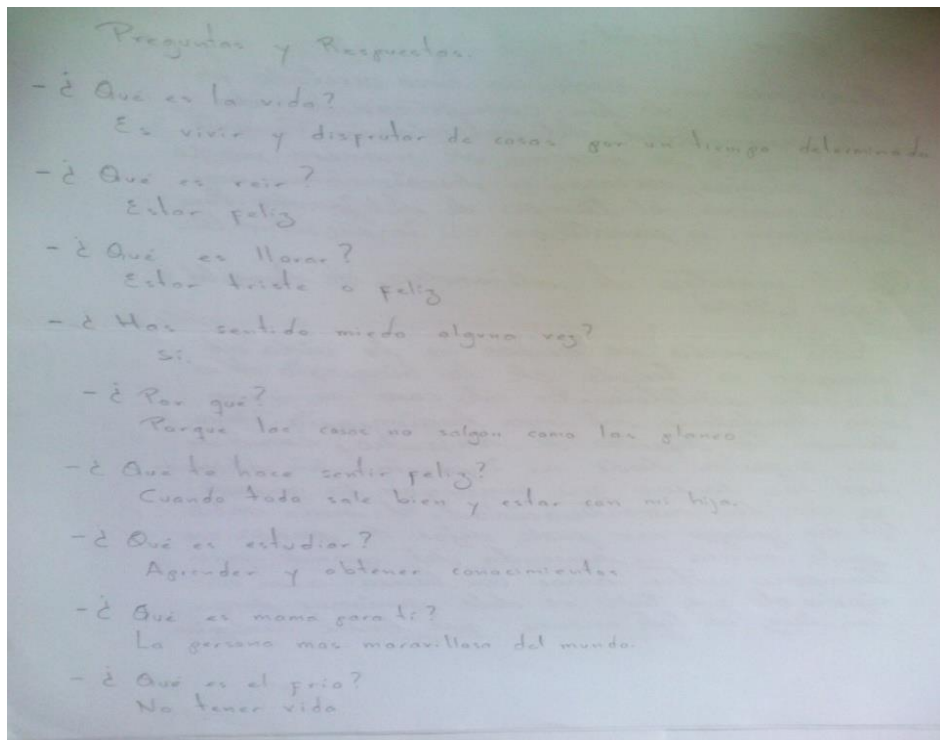 Preguntas y Respuestas.
- ¿ Qué es la vida?
Es vivir y disfrutar de cosas por un tiempo determinado
- ¿ Qué es reir?
Estar feliz
- ¿ Qué es llorar?
Estar triste o feliz
- ¿ Has sentido miedo alguna vez?
Si.
- ¿ Por qué?
Porque las cosas no salgan como las planeo
- ¿ Que te hace sentir feliz?
Cuando todo sale bien y estar con mi hija.
- ¿ Qué es estudiar?
Aprender y obtener conocimientos
- ¿ Qué es mama para ti?
La persona mas maravillosa del mundo.
- ¿ Qué es el frio?
No tener vida